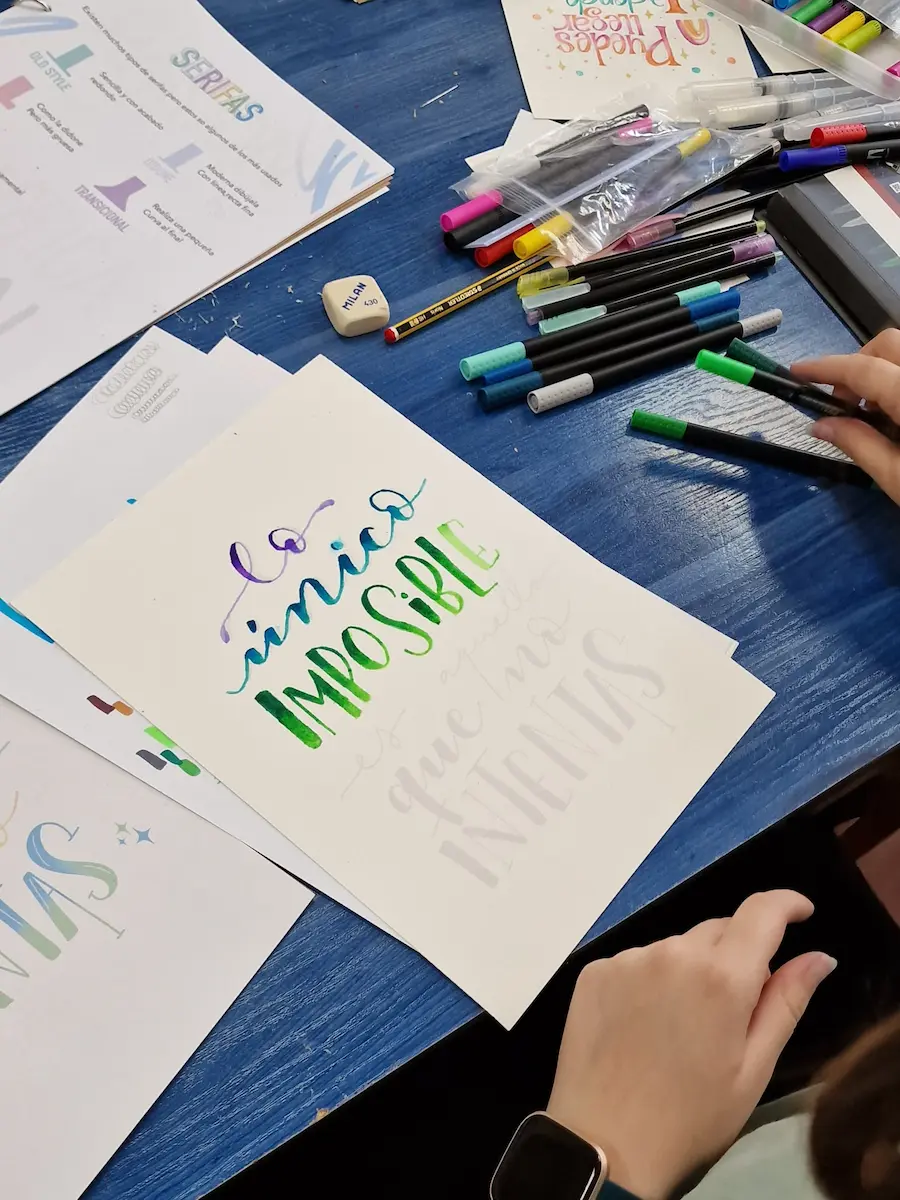 SERIFAS
Existen muchos tipos de serifas pero estos so algunos de los más usados
OLD STYLE
Sencilla y con acabado
redondo
Como la didone
Pero más gruesa
Moderna dibujala
Con linea recta fina
TRANSICIONAL
Realiza una pequeña
Curva al final
Puedes
llegar
MILAN
430
STAEDTLER
lo
único
IMPOSIBLE
es aquello
que no
INTENTAS
NTAS